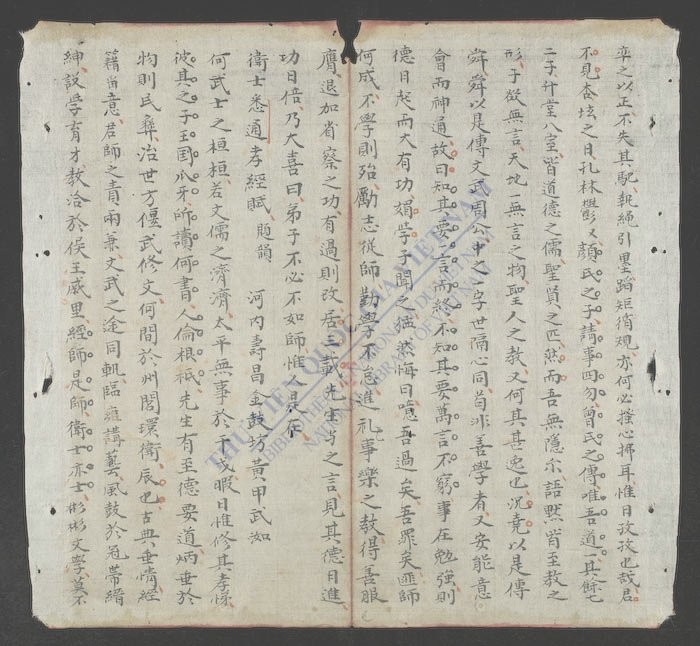 卒之以正不失其馳執繩引墨蹈矩循規亦何必擢心掃耳惟日孜孜也哉君
不見杏坛之日孔林顔氏之子請事四勿曾氏之傳唯吾道一其餘七
二子升堂入室皆道德之儒聖賢之匹然而吾無隱尔語黙皆至教之
形予欲無言天地一無言之物聖人之教又何其甚逸也况堯以是傳
舜舜以是傳文武周公中之一字世隔心同苟非善學者又安能意
會而神通故曰知其要一言而終不知其要萬言不窮事在勉強則
德日起而大有功學子聞之猛然悔曰噫吾過矣吾罪矣匪師
何成不學則殆勵志從師勤學不怠進礼事樂之教得善服
膺退加省察之功有過則改居三載先生与之言見其德日進
功日倍乃大喜曰弟子不必不如師惟是尔
衛士悉通孝經賦 題韻 河内壽昌金鼓坊黃甲武如
何武士之桓桓若文儒之濟濟太平無事於干戈暇日惟修其孝悌
彼其之子王国爪牙師讀何書人倫根柢先生有至德要道炳垂於
物則民彝治世方偃武修文何間於州閭環衛辰也古典垂情經
籍留意君師之責兩兼文武之途同軌臨雍講藝風鼓於冠帶縉
紳設学育才教洽於侯王戚里經師是師衛士亦士彬彬文學莫不
THƯ VIỆN QUỐC GIA VIỆT NAM
NATIONAL LIBRARY OF VIETNAM